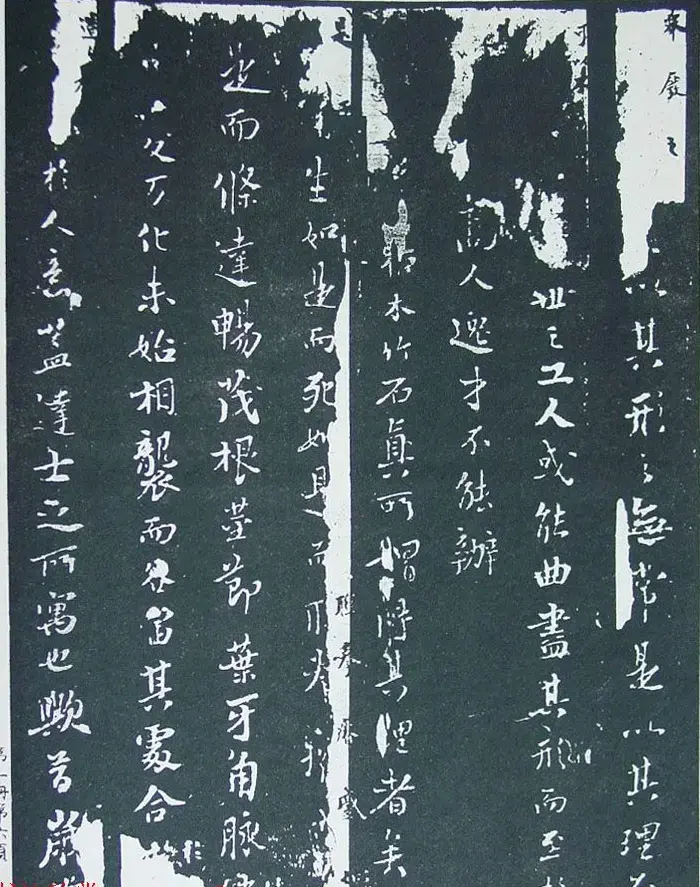 棄廢之
以其形之無常是以其理
世之工人或能曲盡其形而至於
高人逸才不能辦
枯木竹石真所謂得其理者矣
生如是而死如是而
是
聯拳瘠蹙
是而條達暢茂根莖節葉牙角脈
變万化未始相襲而各當其處合於
於人意蓋達士之所寓也歟昔歲
第一冊第六頁